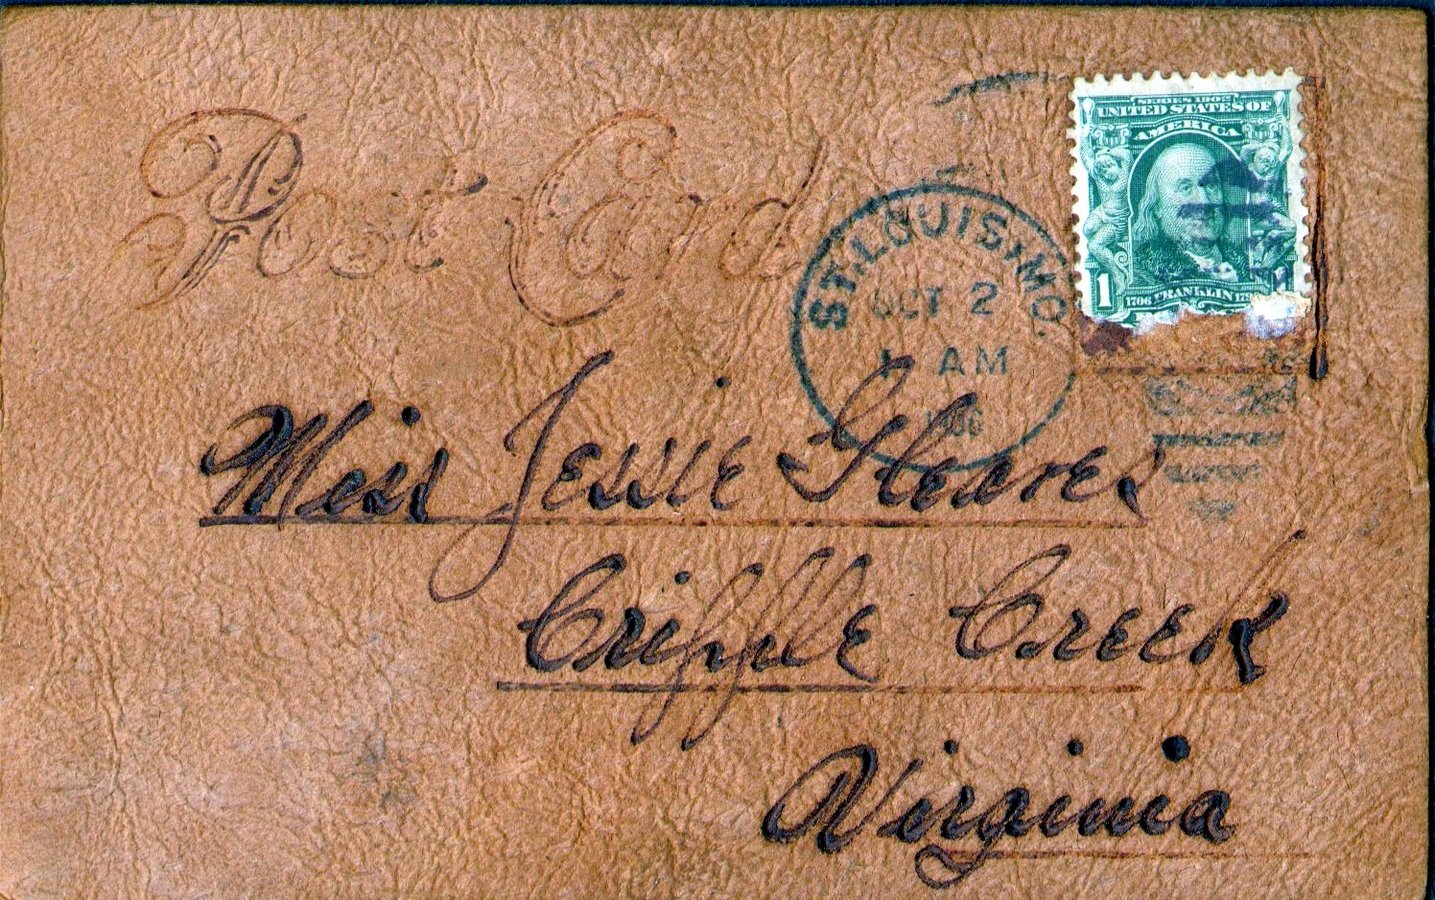 Post Card
SERIES 1902
UNITED STATES OF
AMERICA
1
1706 FRANKLIN 179
ST. LOUIS, MO.
OCT 2
1 AM
1906
Miss Jessie Gleaves
Cripple Creek
Virginia